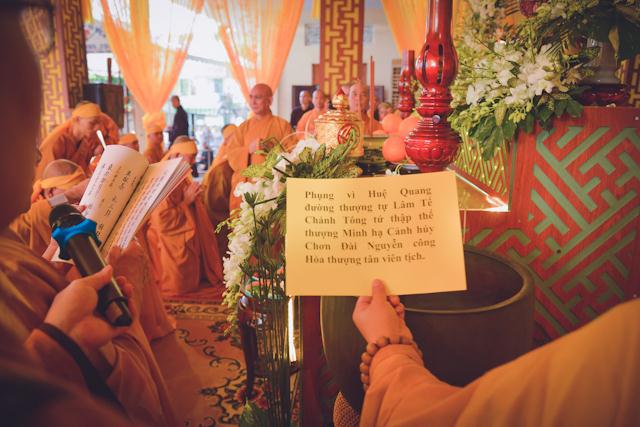 Phụng vì Huệ Quang
đường thượng tự Lâm Tế
Chánh Tông tứ thập thế
thượng Minh hạ Cảnh húy
Chơn Đài Nguyễn công
Hòa thượng tân viên tịch.